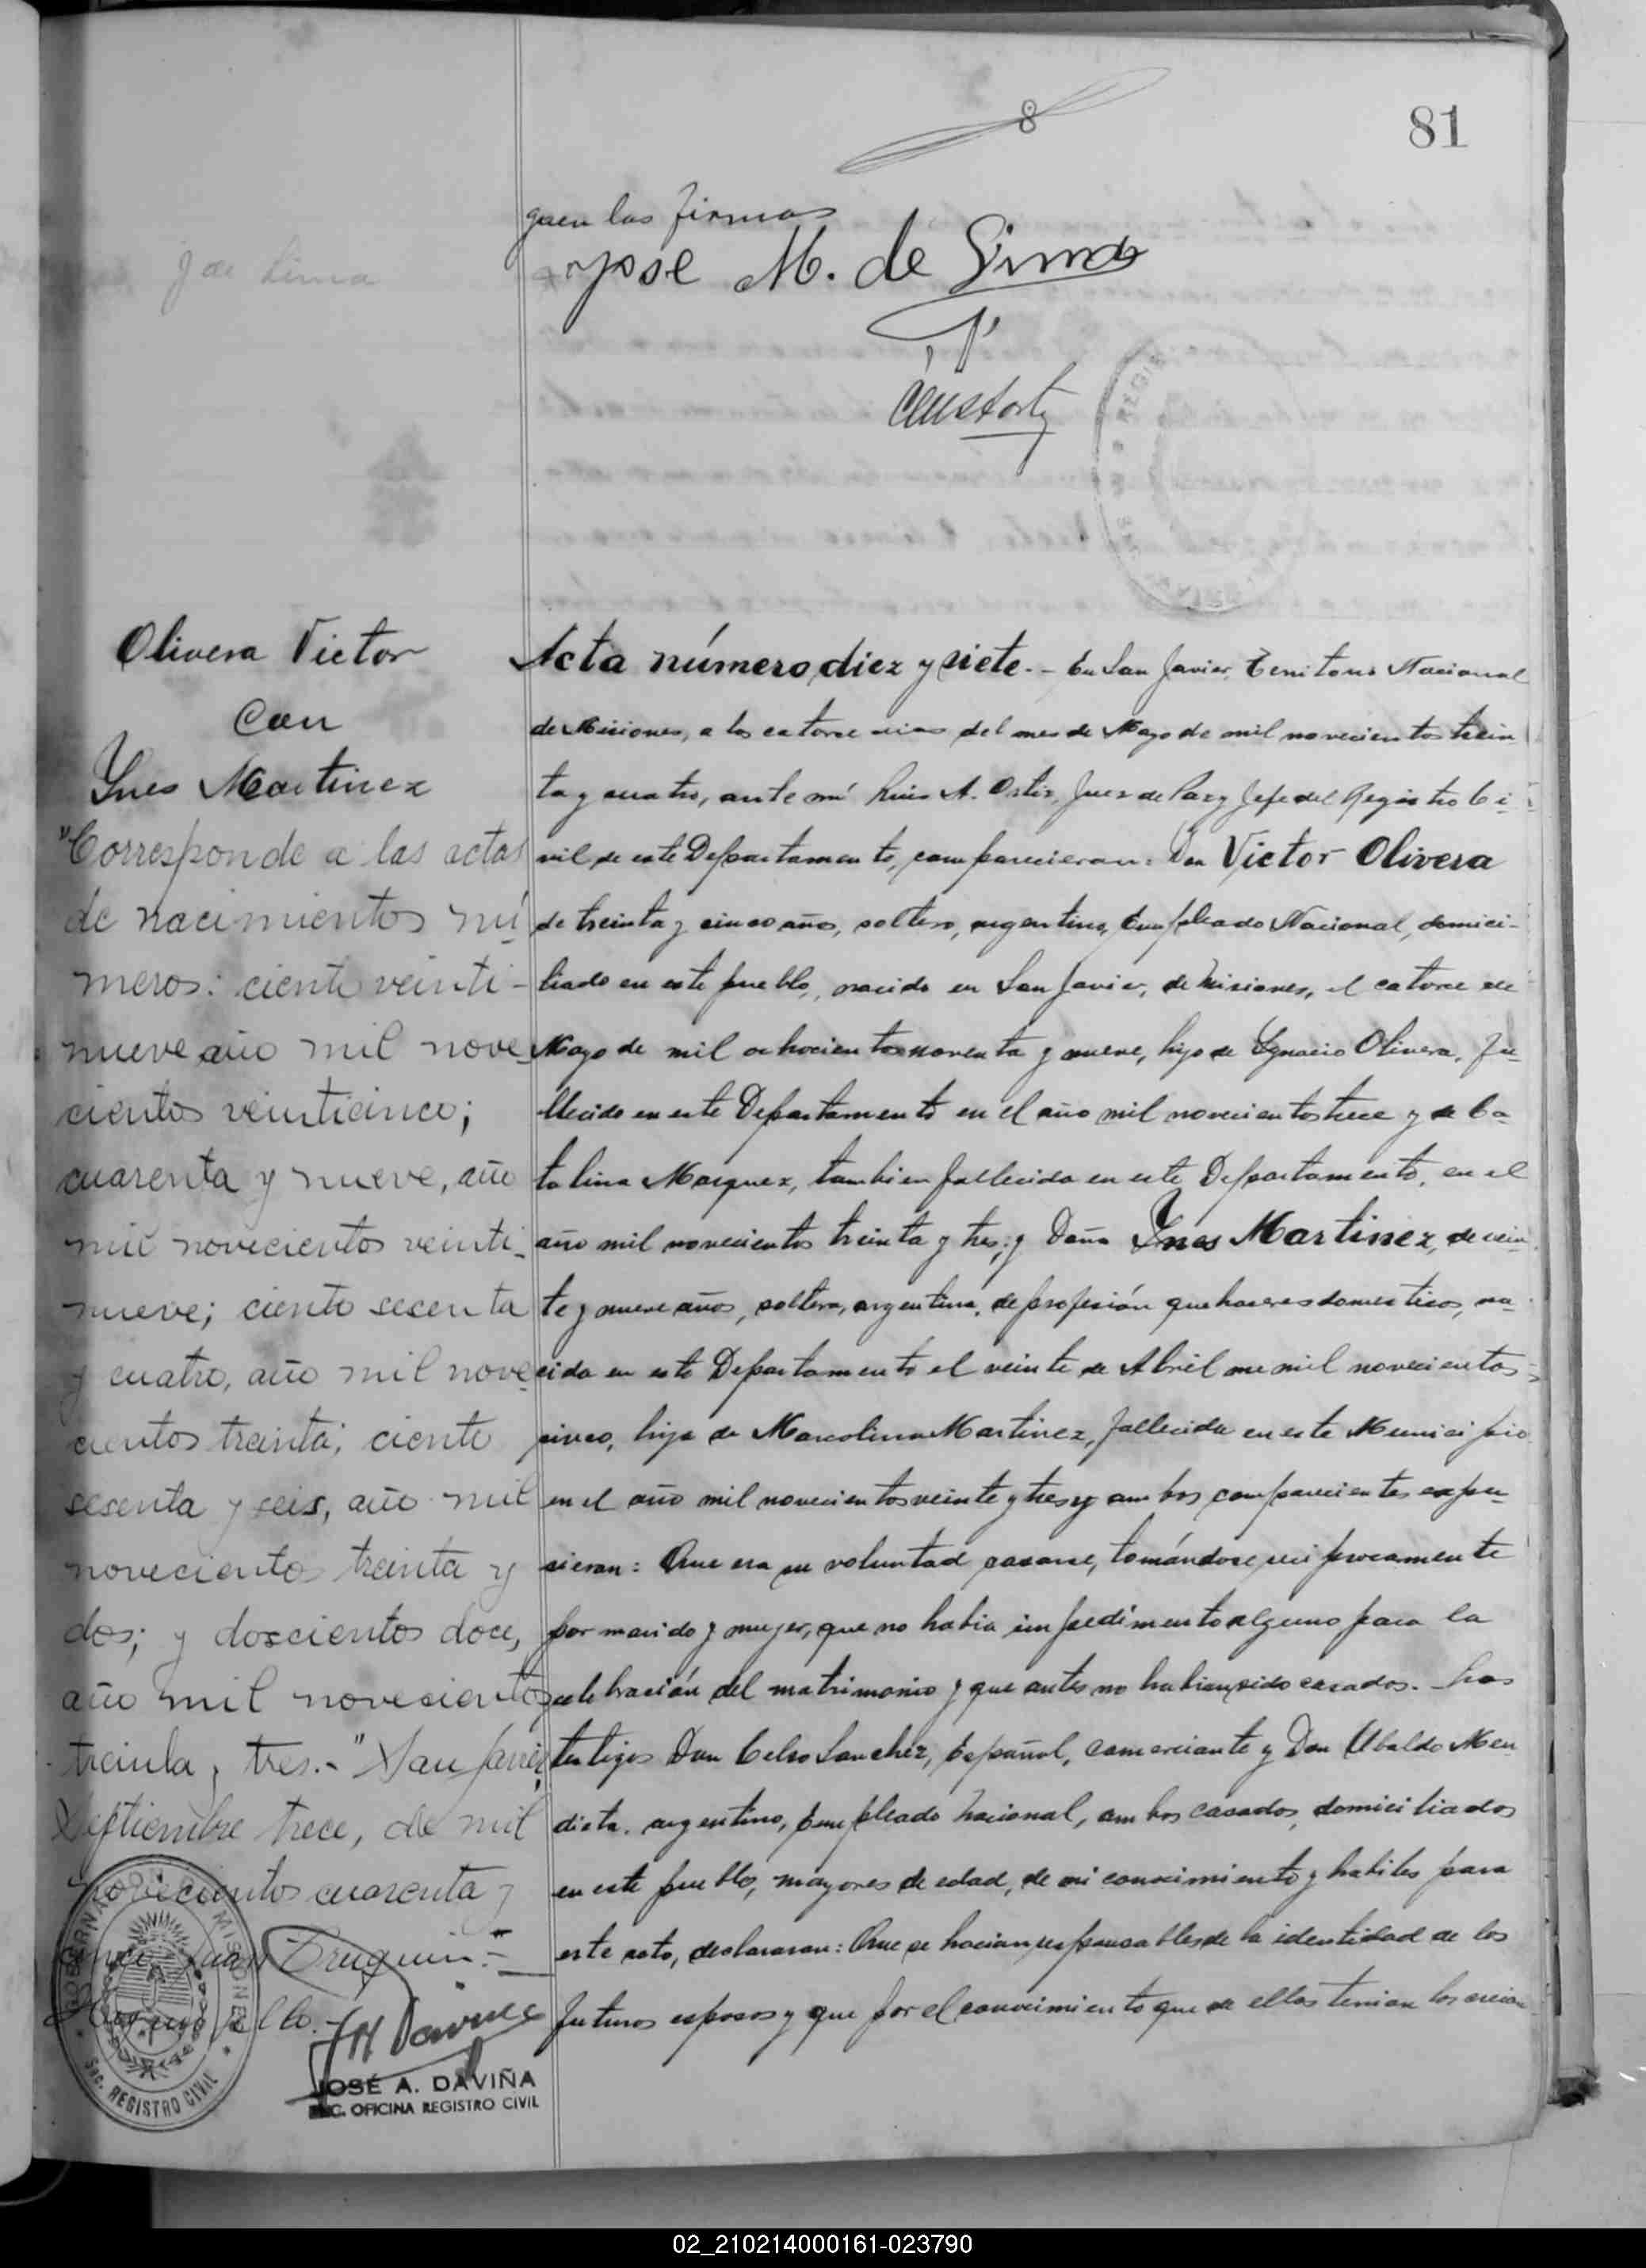 81
8
guen las firmas
José M. de Lima
J de Lima
Olivera Victor
con
Ynes Martinez
"Corresponde a las actas
de nacimientos nú
meros: ciento veinti-
nueve año mil nove-
cientos veinticinco;
cuarenta y nueve, año
mil novecientos veinti-
nueve; ciento sesenta
y cuatro, año mil nove-
cientos treinta; ciento
sesenta y seis, año mil
novecientos treinta y
dos; y doscientos doce,
año mil novecientos
treinta y tres.-" San Javier,
Septiembre trece, de mil
novecientos cuarenta y
Juan
sello.-
JOSÉ A. DAVIÑA
OFICINA REGISTRO CIVIL
GOBERNACION MISIONES
REGISTRO CIVIL
Acta número diez y siete.- En San Javier, Territorio Nacional
de Misiones, a los catorce dias del mes de Mayo de mil novecientos trein
ta y cuatro, ante mí Luis A. Ortiz, Juez de Paz y Jefe del Registro Ci-
vil de este Departamento, comparecieron: Don Victor Olivera
de treinta y cinco años, soltero, argentino, Empleado Nacional, domici-
liado en este pueblo, nacido en San Javier, de Misiones, el catorce de
Mayo de mil ochocientos noventa y nueve, hijo de Ygnacio Olivera, fa-
llecido en este Departamento en el año mil novecientos trece y de Ca-
talina Marquez, tambien fallecida en este Departamento, en el
año mil novecientos treinta y tres; y Doña Ynes Martinez, de vein
te y nueve años, soltera, argentina, de profesión quehaceres domesticos, na-
cida en este Departamento el veinte de Abril de mil novecientos
cinco, hija de Marcolina Martinez, fallecida en este Municipio
en el año mil novecientos veinte y tres y ambos comparecientes expu-
sieron: Que era su voluntad casarse, tomándose reciprocamente
por marido y mujer, que no habia impedimento alguno para la
celebración del matrimonio y que antes no habian sido casados.- Los
testigos Don Celso Sanchez, Español, comerciante y Don Ubaldo Men
dieta, argentino, Empleado Nacional, ambos casados, domiciliados
en este pueblo, mayores de edad, de mi conocimiento y habiles para
este acto, declararon: Que se hacian responsables de la identidad de los
futuros esposos y que por el conocimiento que de ellos tenian los creian
02_210214000161-023790